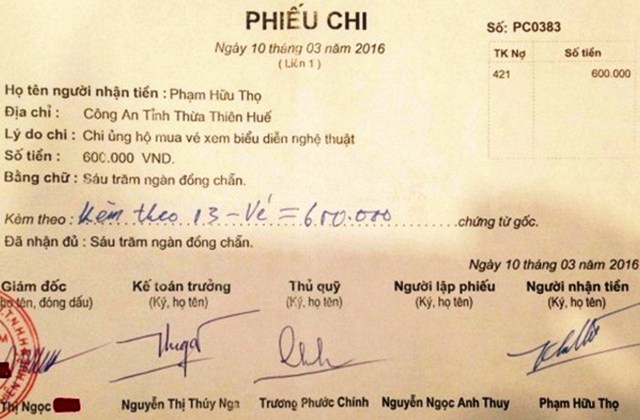 PHIẾU CHI
Số: PC0383
Ngày 10 tháng 03 năm 2016
( Liên 1 )
TK Nợ Số tiền
421 600.000
Họ tên người nhận tiền : Phạm Hữu Thọ
Địa chỉ : Công An Tỉnh Thừa Thiên Huế
Lý do chi : Chi ủng hộ mua vé xem biểu diễn nghệ thuật
Số tiền : 600.000 VND.
Bằng chữ : Sáu trăm ngàn đồng chẵn.
Kèm theo : Kèm theo 13 - Vé = 600.000 chứng từ gốc.
Đã nhận đủ : Sáu trăm ngàn đồng chẵn.
Ngày 10 tháng 03 năm 2016
Giám đốc Kế toán trưởng Thủ quỹ Người lập phiếu Người nhận tiền
họ tên, đóng dấu) (Ký, họ tên) (Ký, họ tên) (Ký, họ tên) (Ký, họ tên)
Thị Ngọc Nguyễn Thị Thúy Nga Trương Phước Chính Nguyễn Ngọc Anh Thuy Phạm Hữu Thọ